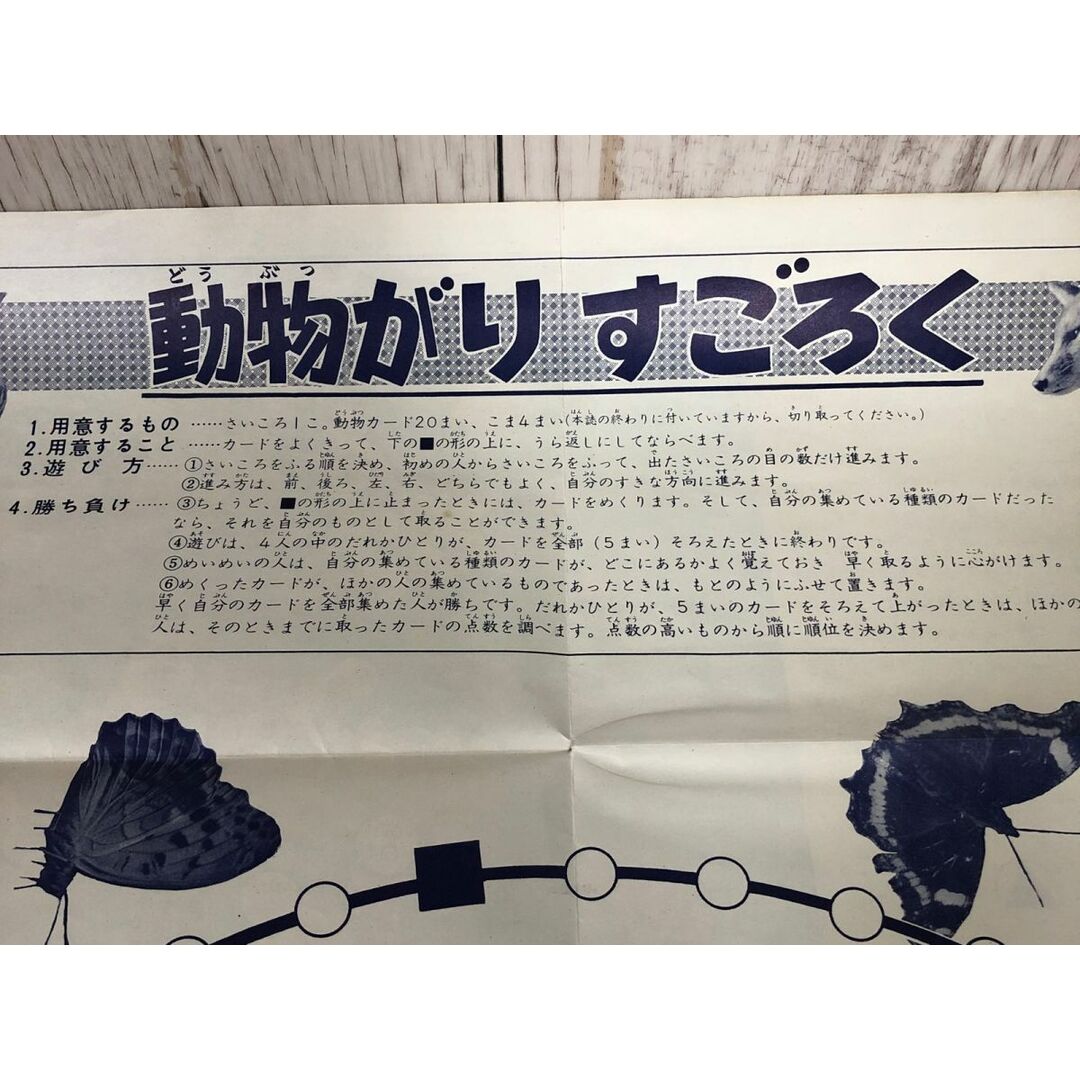 動物がり すごろく
1.用意するもの ……さいころ1こ。動物カード20まい、こま4まい(本誌の終わりに付いていますから、切り取ってください。)
2.用意すること ……カードをよくきって、下の■の形の上に、うら返しにしてならべます。
3.遊び方…… ①さいころをふる順を決め、初めの人からさいころをふって、出たさいころの目の数だけ進みます。
②進み方は、前、後ろ、左、右、どちらでもよく、自分のすきな方向に進みます。
4.勝ち負け…… ③ちょうど、■の形の上に止まったときには、カードをめくります。そして、自分の集めている種類のカードだった
なら、それを自分のものとして取ることができます。
④遊びは、4人の中のだれかひとりが、カードを全部(5まい)そろえたときに終わりです。
⑤めいめいの人は、自分の集めている種類のカードが、どこにあるかよく覚えておき 早く取るように心がけます。
⑥めくったカードが、ほかの人の集めているものであったときは、もとのようにふせて置きます。
早く自分のカードを全部集めた人が勝ちです。だれかひとりが、5まいのカードをそろえて上がったときは、ほかの
人は、そのときまでに取ったカードの点数を調べます。点数の高いものから順に順位を決めます。